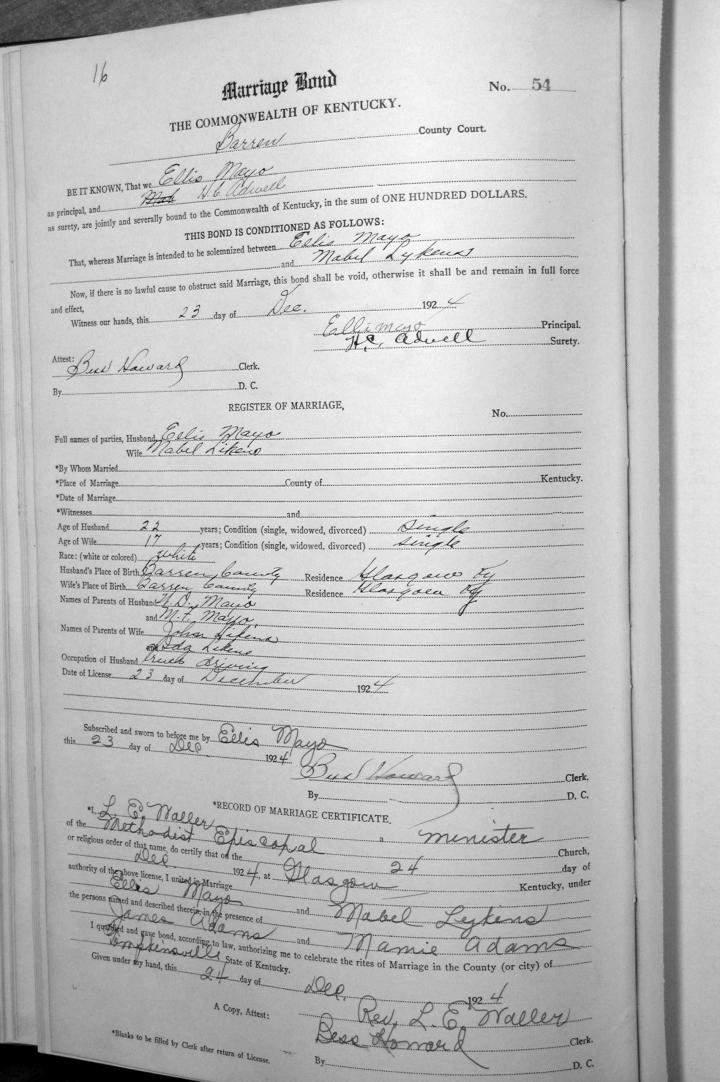 16
Marriage Bond
No. 54
THE COMMONWEALTH OF KENTUCKY.
Barren County Court.
BE IT KNOWN, That we Ellis Mayo
as principal, and H.C. Adwell
as surety, are jointly and severally bound to the Commonwealth of Kentucky, in the sum of ONE HUNDRED DOLLARS.
THIS BOND IS CONDITIONED AS FOLLOWS:
That, whereas Marriage is intended to be solemnized between Ellis Mayo
and Mabel Lykens
Now, if there is no lawful cause to obstruct said Marriage, this bond shall be void, otherwise it shall be and remain in full force
and effect,
Witness our hands, this 23 day of Dec. 1924
Ellis Mayo Principal.
H.C. Adwell Surety.
Attest:
Bess Howard Clerk.
By D. C.
REGISTER OF MARRIAGE,
No.
Full names of parties, Husband Ellis Mayo
Wife Mabel Likens
*By Whom Married
*Place of Marriage County of Kentucky.
*Date of Marriage
*Witnesses and
Age of Husband 22 years; Condition (single, widowed, divorced) single
Age of Wife 17 years; Condition (single, widowed, divorced) single
Race: (white or colored) white
Husband's Place of Birth Barren County Residence Glasgow Ky
Wife's Place of Birth Barren County Residence Glasgow Ky
Names of Parents of Husband Mayo
and M.F. Mayo
Names of Parents of Wife John Likens
and Likens
Occupation of Husband truck driving
Date of License 23 day of December 1924
Subscribed and sworn to before me by Ellis Mayo
this 23 day of Dec 1924
Bess Howard Clerk.
By D. C.
*RECORD OF MARRIAGE CERTIFICATE.
*I, L. E. Waller a minister
of the Methodist Episcopal Church,
or religious order of that name, do certify that on the 24 day of
Dec 1924, at Glasgow Kentucky, under
authority of the above license, I united in Marriage
Ellis Mayo and Mabel Leykens
the persons named and described therein, in the presence of
James Adams and Mamie Adams
I qualified and gave bond, according to law, authorizing me to celebrate the rites of Marriage in the County (or city) of
Tompkinsville State of Kentucky.
Given under my hand, this 24 day of Dec. 1924
Rev. L. E. Waller
A Copy, Attest: Bess Howard Clerk.
*Blanks to be filled by Clerk after return of License.
By D. C.